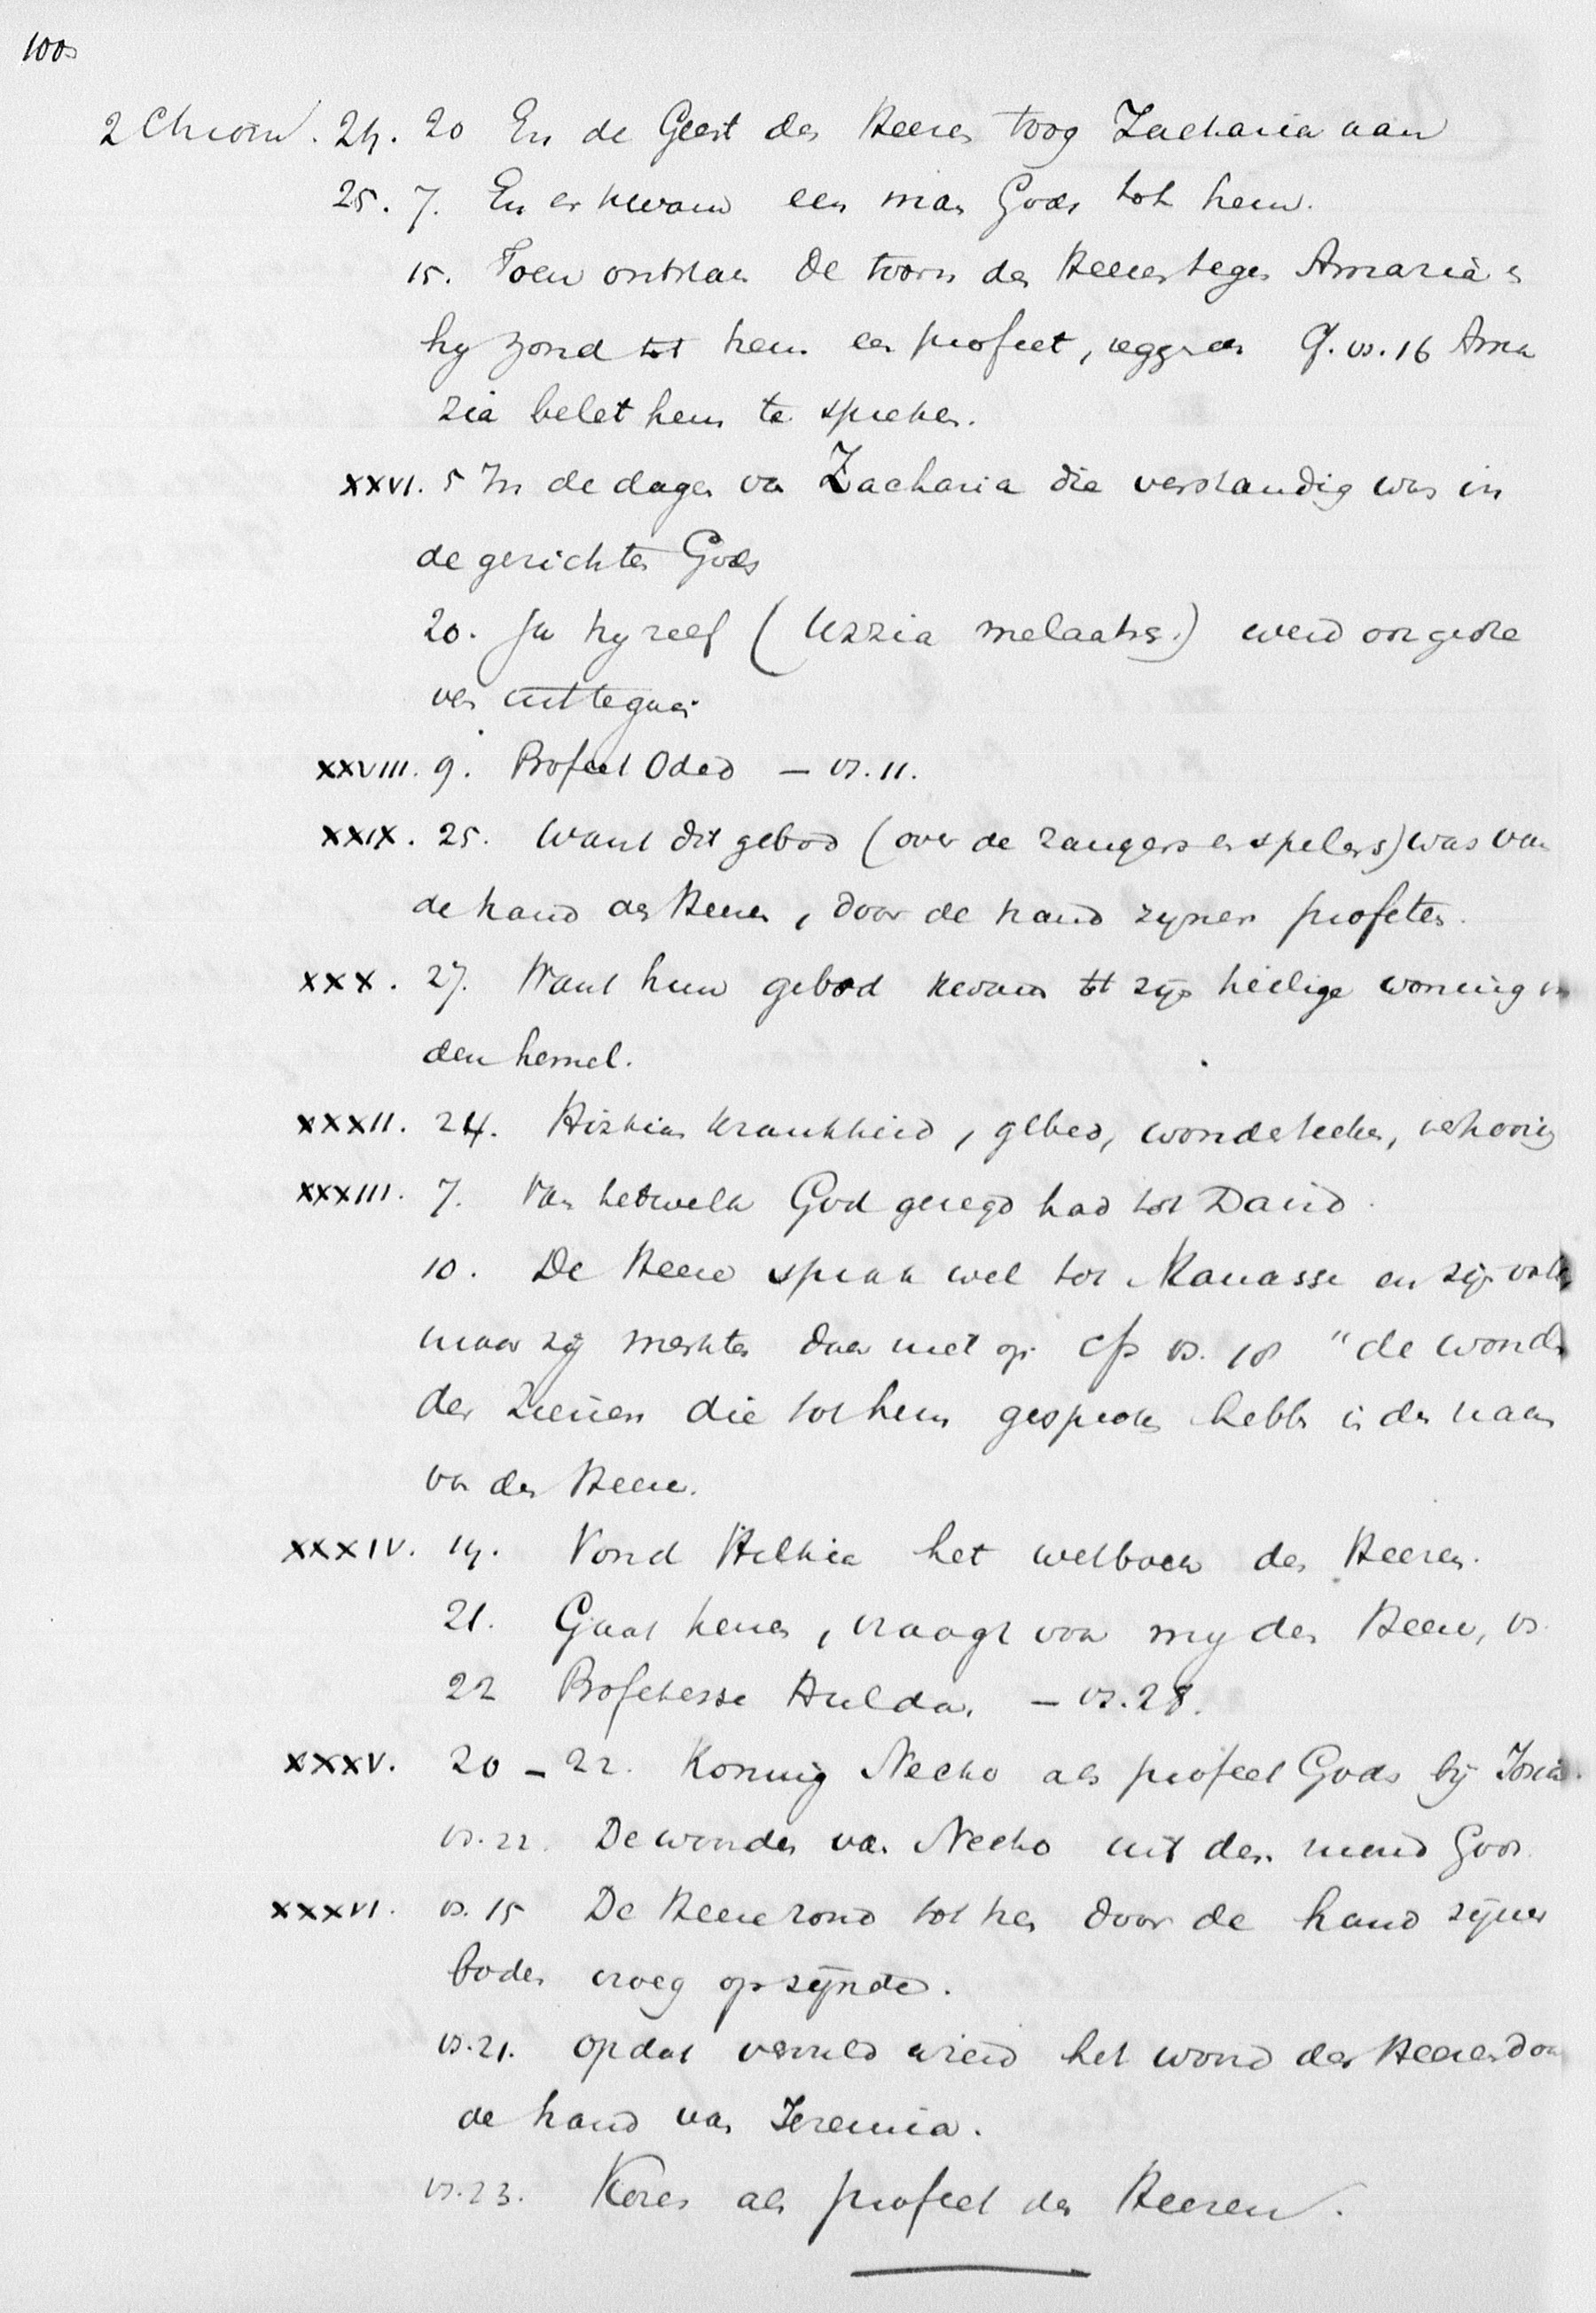 100
2 Chron. 24. 20 En de Geest des Heeren toog Zacharia aan
25. 7. En er kwam een man Gods tot hem.
15. Toen ontstak de toorn des Heeren tegen Amazia en
hy zond tot hem een profeet, zeggende vs. 16 Ama
zia belet hem te spreken.
XXVI. 5 In de dagen van Zacharia die verstandig was in
de gezichten Gods
20. Ja hy zelf (Uzzia melaatsch) werd oor gedre
ven uit te gaan
XXVIII. 9. Profeet Oded — vs. 11.
XXIX. 25. Want dit gebod (over de zangers en spelers) was van
de hand des Heeren, door de hand zyner profeten.
XXX. 27. Want hun gebed kwam tot zijn heilige woning in
den hemel.
XXXII. 24. Hizkias krankheid, gebed, wonderteeken, verhooring
XXXIII. 7. Van hetwelk God gezegd had tot David.
10. De Heere sprak wel tot Manasse en zijn volk
maar zij merkten daar niet op. cf vs. 18 "de woorden
der Zieners die tot hem gesproken hebben in den naam
van den Heere.
XXXIV. 14. Vond Hilkia het wetboek des Heeren.
21. Gaat henen, vraagt voor my den Heere, vs.
22 Profetesse Hulda. — vs. 28.
XXXV. 20 – 22. Koning Necho als profeet Gods bij Josia.
vs. 22. De woorden van Necho uit den mond Gods.
XXXVI. vs. 15 De Heere zond tot hen door de hand zijner
boden vroeg op zijnde.
vs. 21. opdat vervuld wierd het woord des Heeren door
de hand van Jeremia.
vs. 23. Kores als profeet des Heeren.